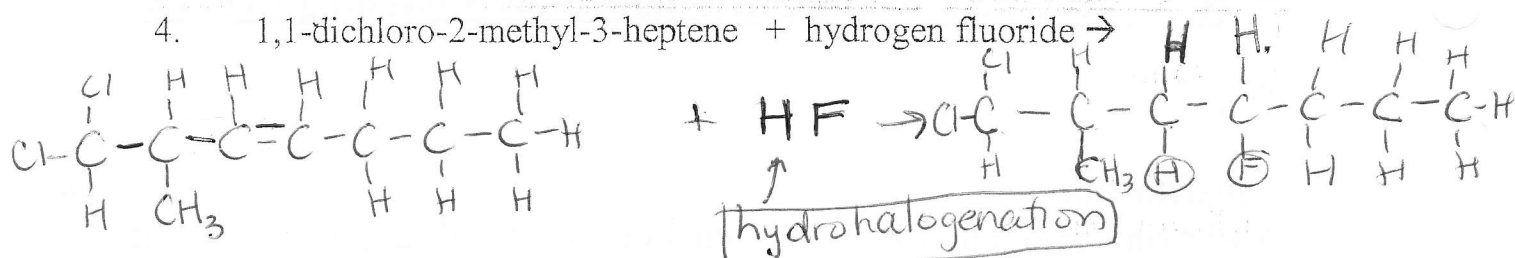 4. 1,1-dichloro-2-methyl-3-heptene + hydrogen fluoride →
Cl H H H H H H
Cl-C-C-C=C-C-C-C-H
H CH₃ H H H
+ HF →
Cl H H H. H H H
Cl-C-C-C-C-C-C-C-H
H CH₃ H F H H H
hydrohalogenation